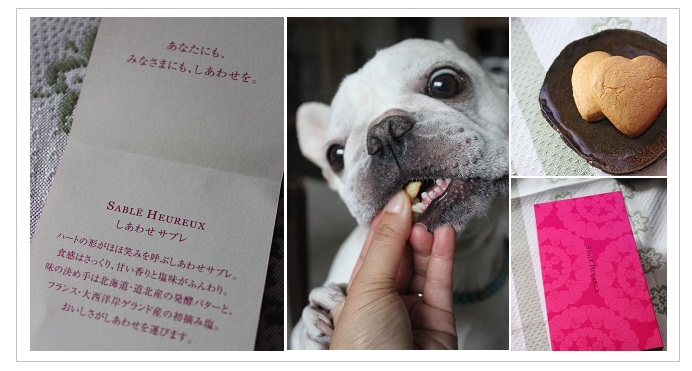 あなたにも、
みなさまにも、しあわせを。
SABLE HEUREUX
しあわせサブレ
ハートの形がほほ笑みを呼ぶしあわせサブレ。
食感はさっくり、甘い香りと塩味がふんわり。
味の決め手は北海道・道北産の発酵バターと、
フランス・大西洋岸ゲランド産の初摘み塩。
おいしさがしあわせを運びます。
SABLE HEUREUX